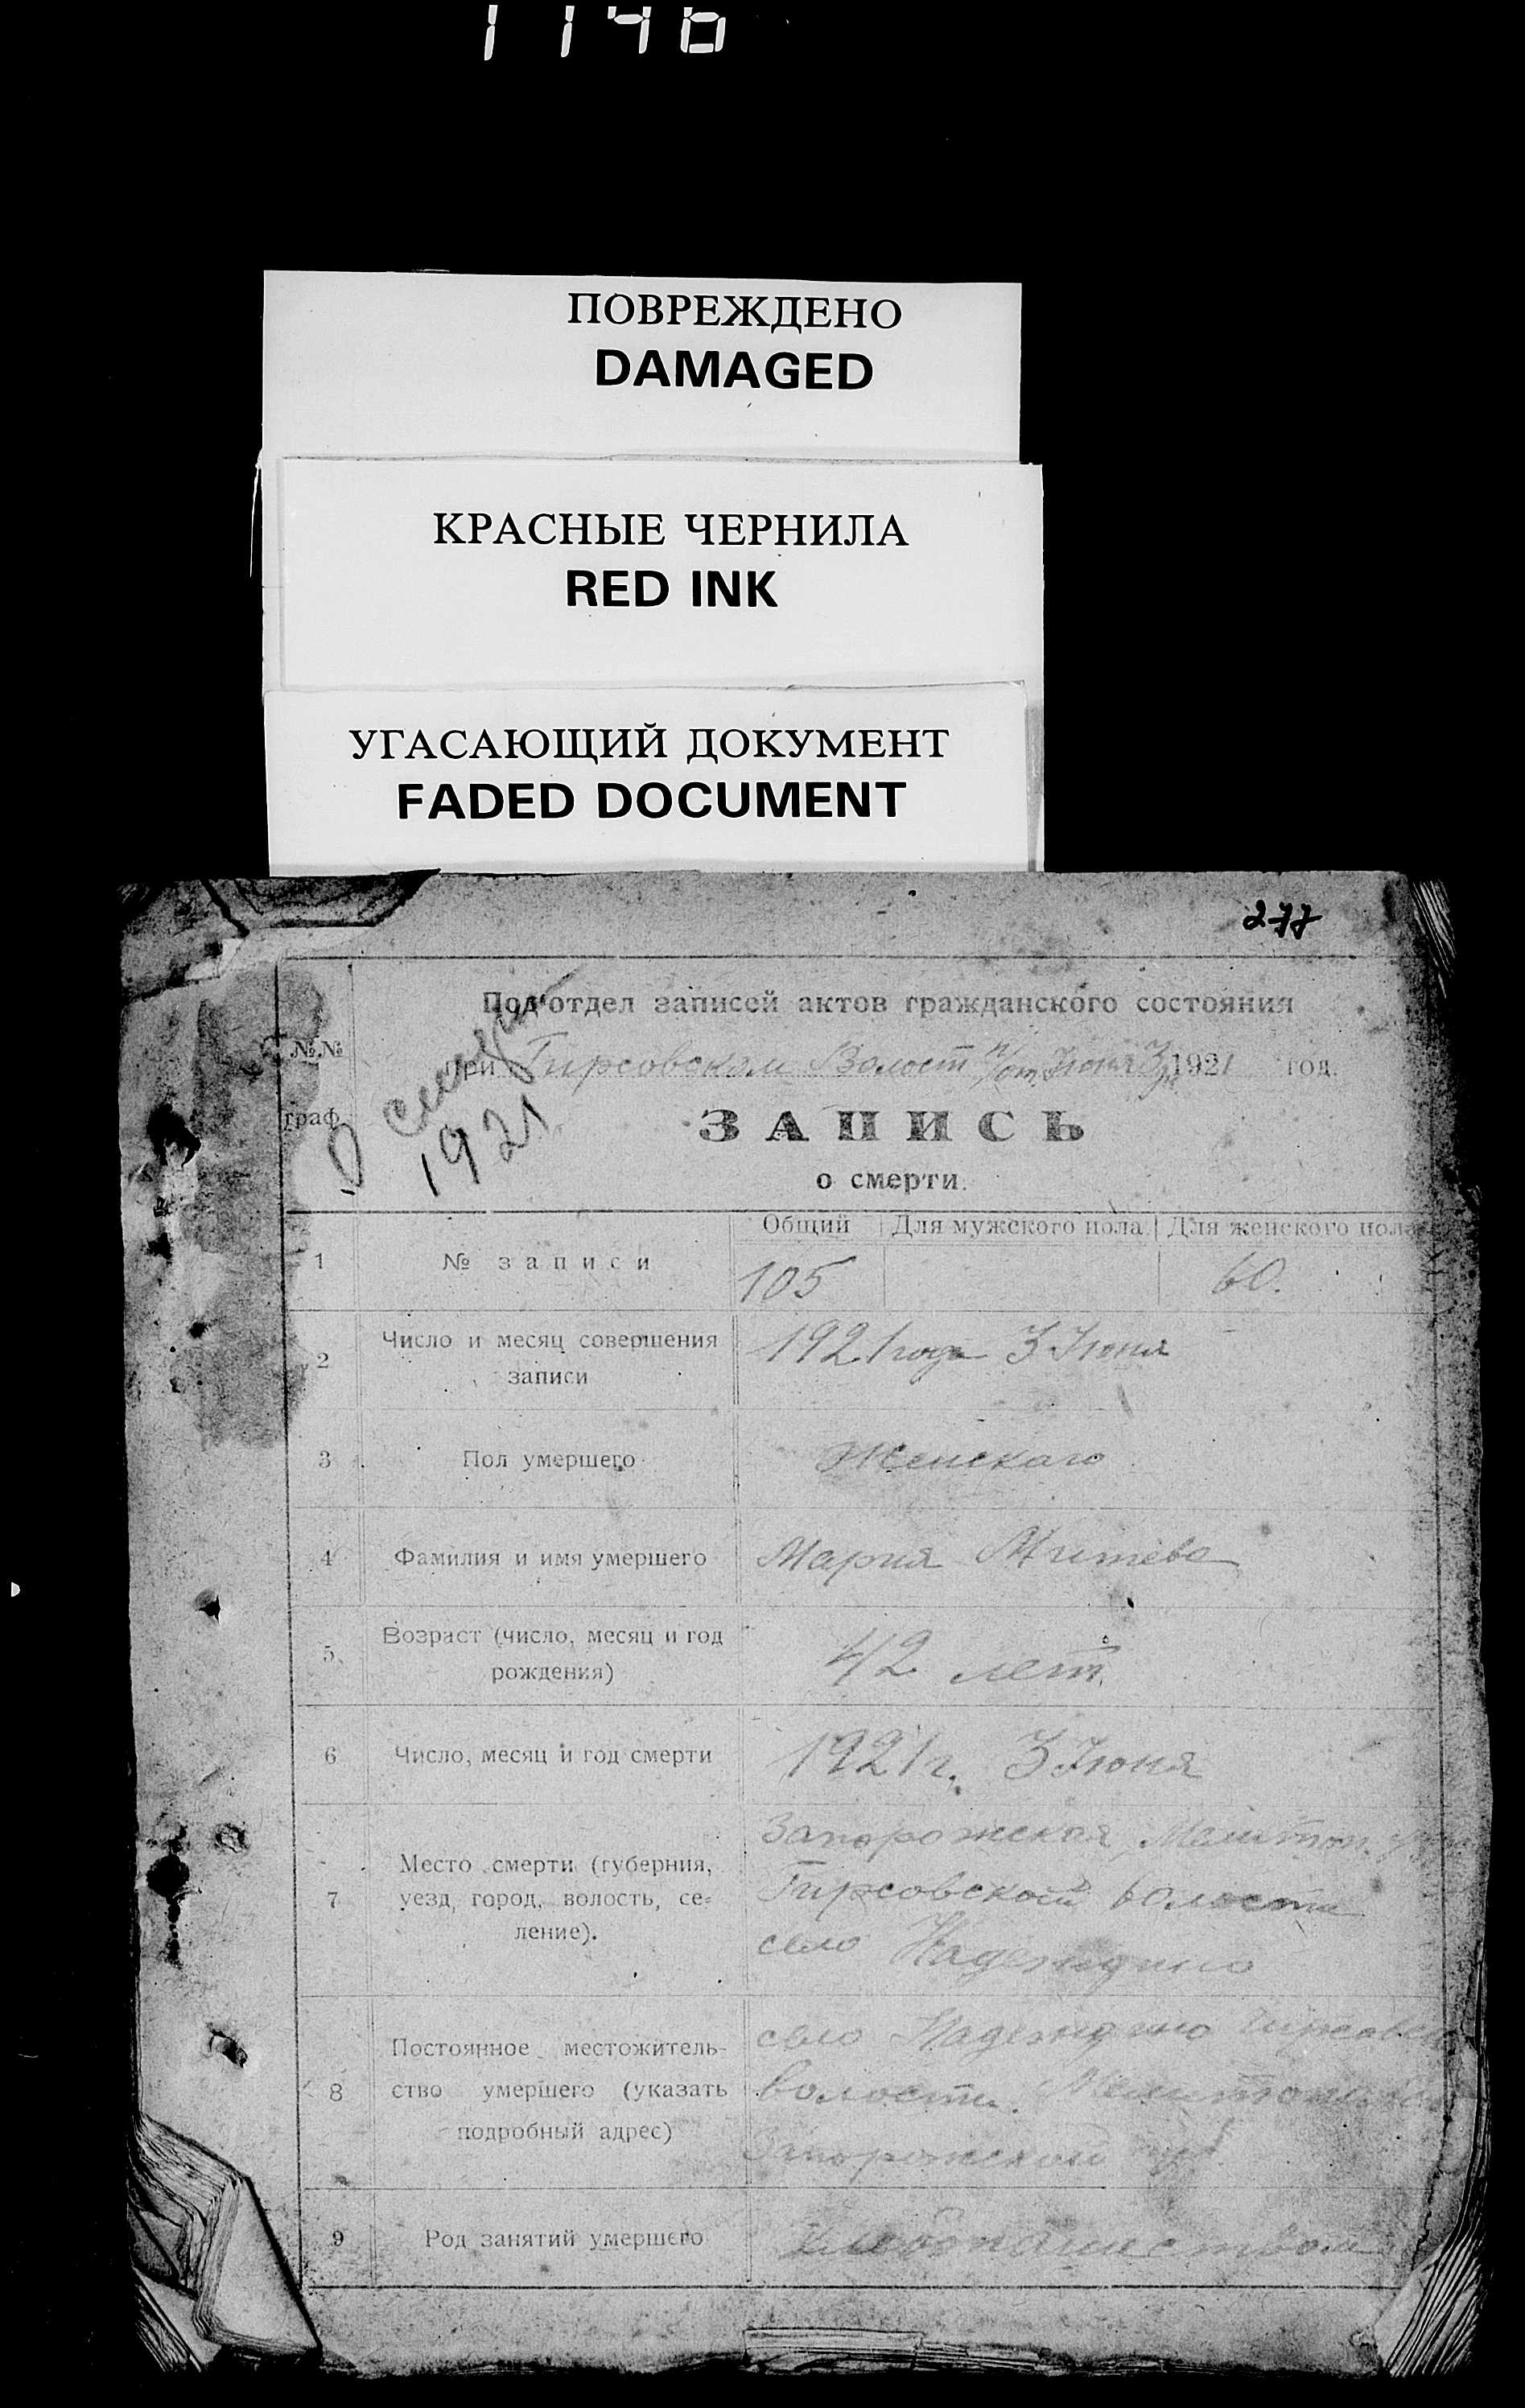 1146
ПОВРЕЖДЕНО
DAMAGED
КРАСНЫЕ ЧЕРНИЛА
RED INK
УГАСАЮЩИЙ ДОКУМЕНТ
FADED DOCUMENT
277
Подотдел записей актов гражданского состояния
№№ при Гирсовском Волост п/от Июня 3 1921 год.
граф.
О смерти
1921
ЗАПИСЬ
о смерти.
Общий Для мужского пола Для женского пола
1 № записи 105 60.
2 Число и месяц совершения 1921 года 3 Июня
записи
3 Пол умершего Женскаго
4 Фамилия и имя умершего Мария Митева
5 Возраст (число, месяц и год 42 лет
рождения)
6 Число, месяц и год смерти 1921 г. 3 Июня
Запорожская, Мелитоп.
Место смерти (губерния,
7 уезд, город, волость, се- Гирсовской волости
ление). село Надеждино
село Надеждино Гирсовской
Постоянное местожитель-
8 ство умершего (указать волости.
подробный адрес) Запорожской губ.
9 Род занятий умершего Хлебопашеством